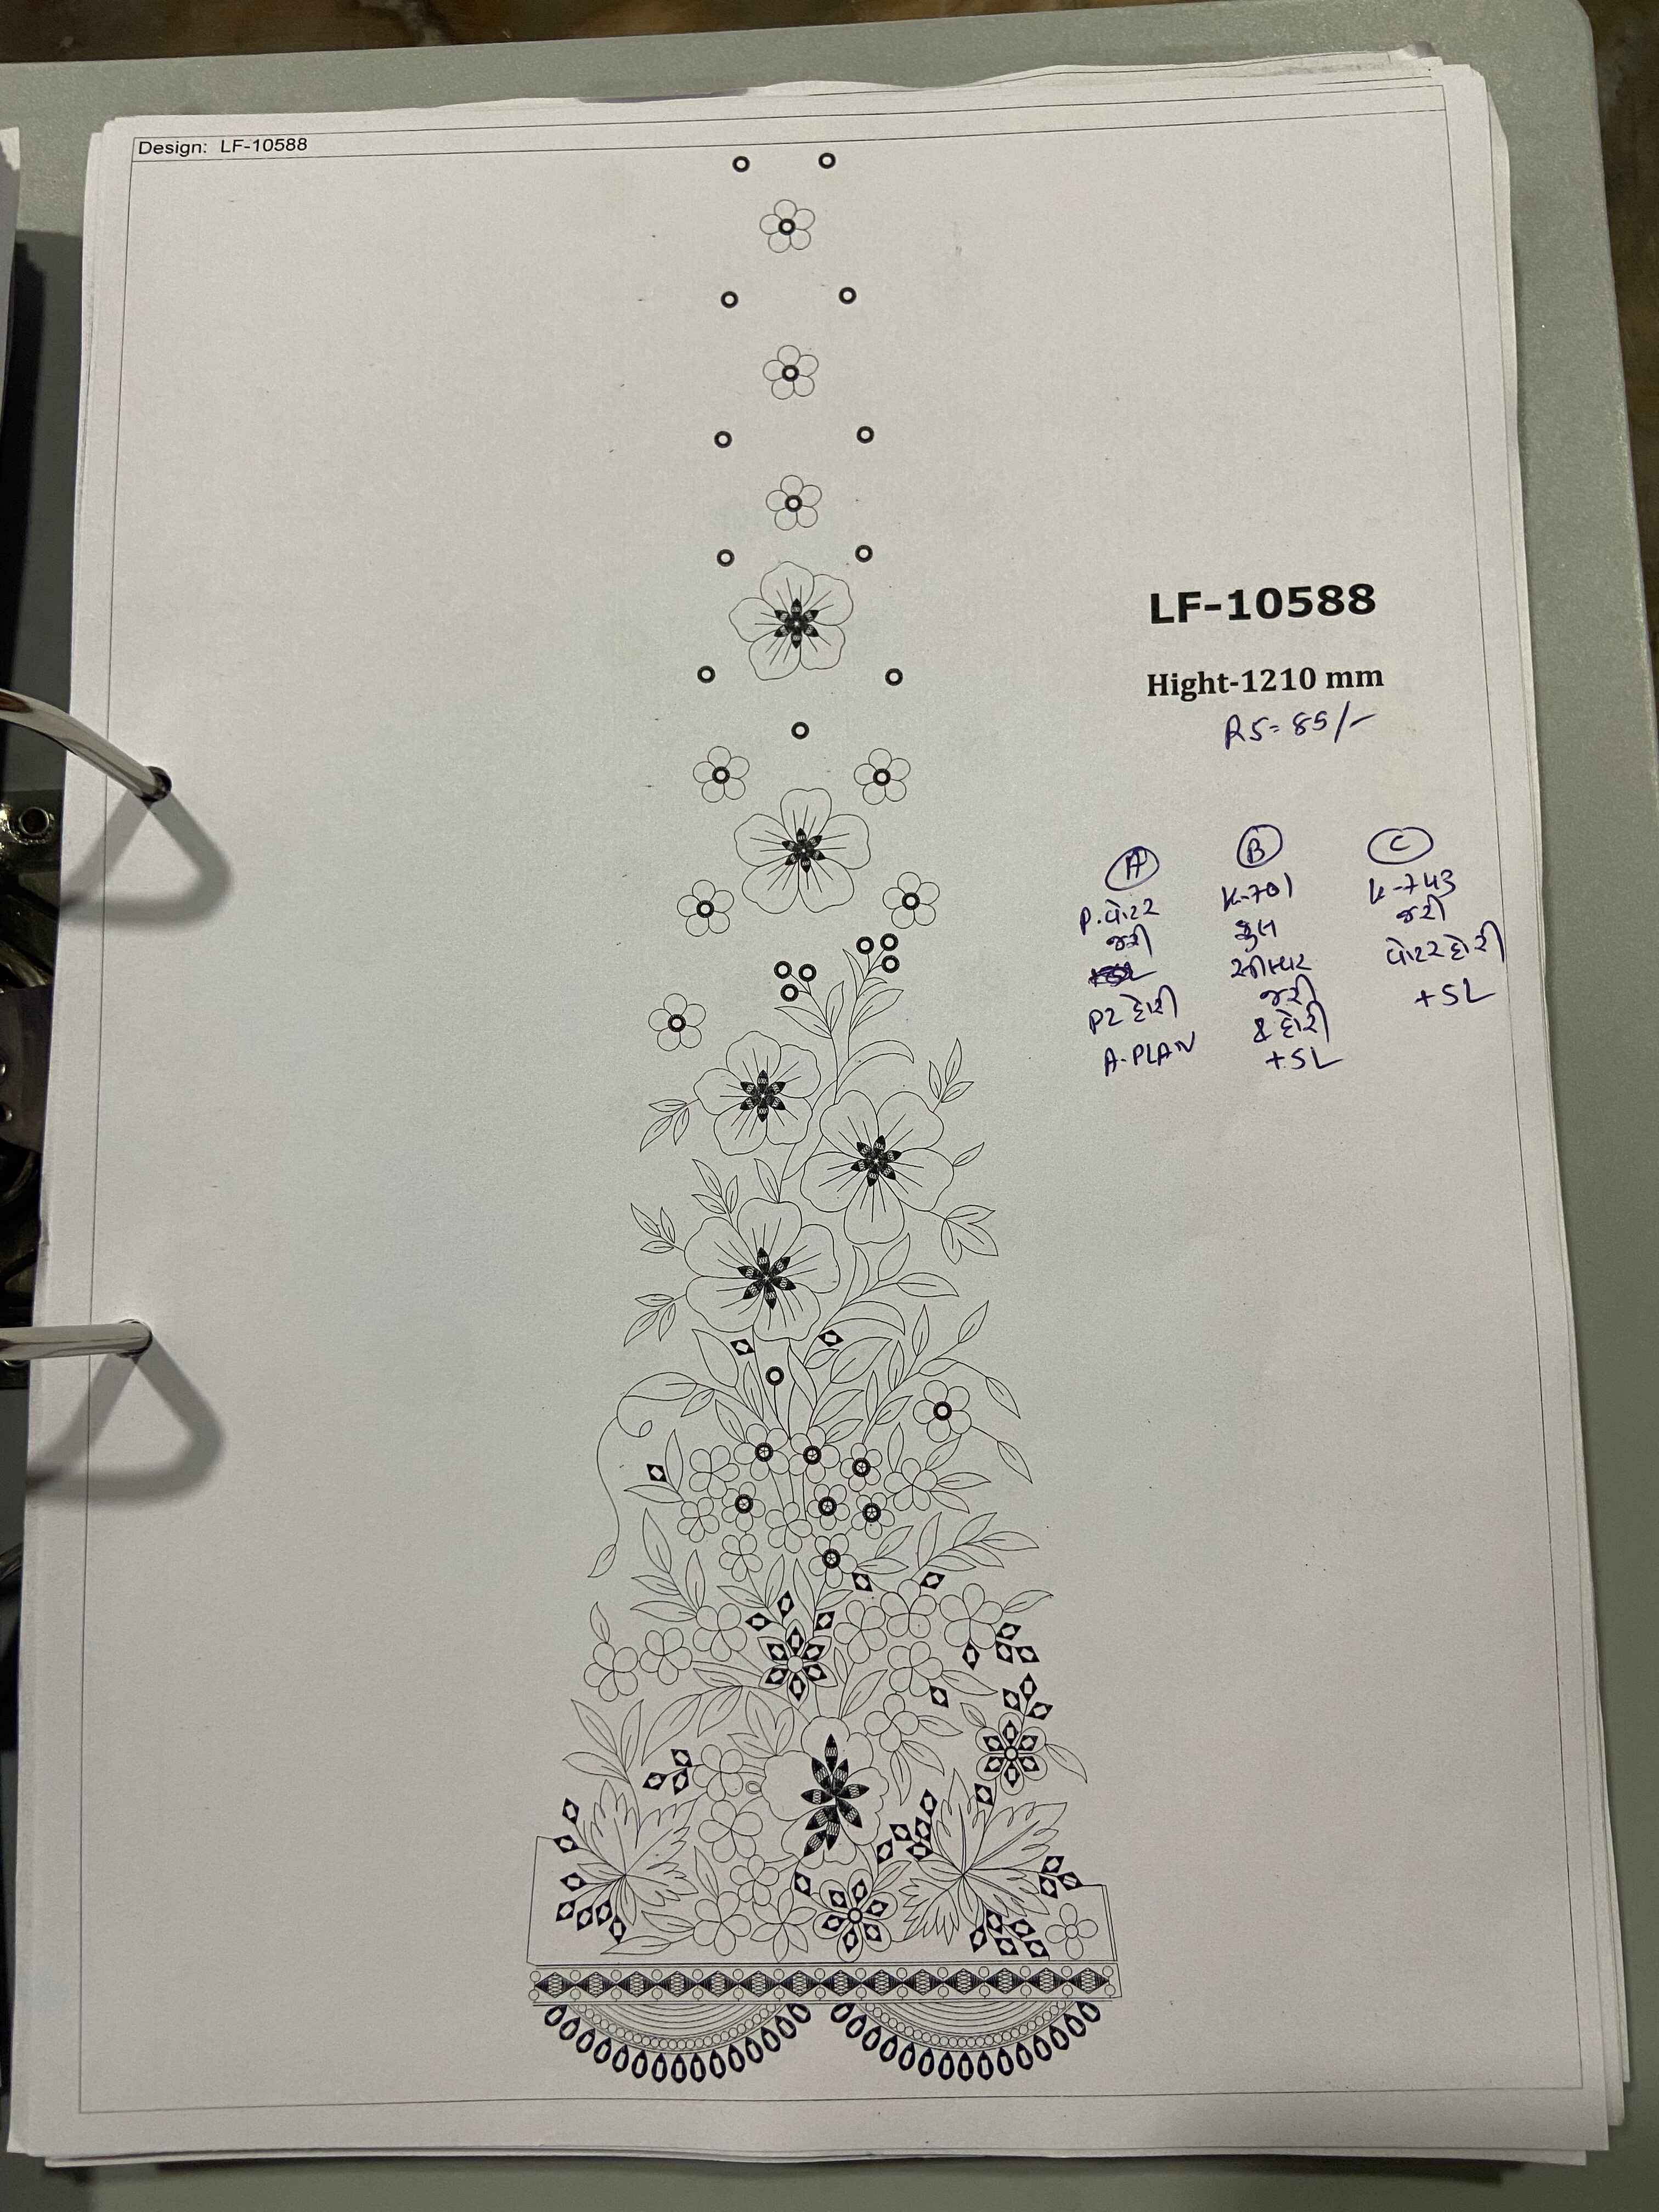 Design: LF-10588
LF-10588
Hight-1210 mm
RS= 85/-
A
P. વોટર
જરી
P2 દોરી
A-PLAN
B
K-701
ફુલ
જરી
& દોરી
+SL
C
K-743
જરી
વોટર દોરી
+SL